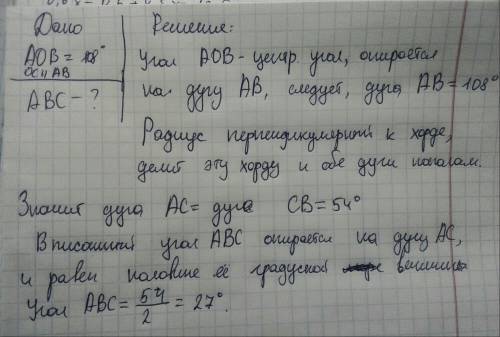 Дано
AOB = 108°
OC ⊥ AB
ABC - ?
Решение:
Угол AOB - центр. угол, опирается
на дугу AB, следует, дуга AB = 108°
Радиус перпендикулярный к хорде,
делит эту хорду и обе дуги пополам.
Значит дуга AC = дуга CB = 54°
Вписанный угол ABC опирается на дугу AC,
и равен половине её градусной величины
Угол ABC = 54/2 = 27°.